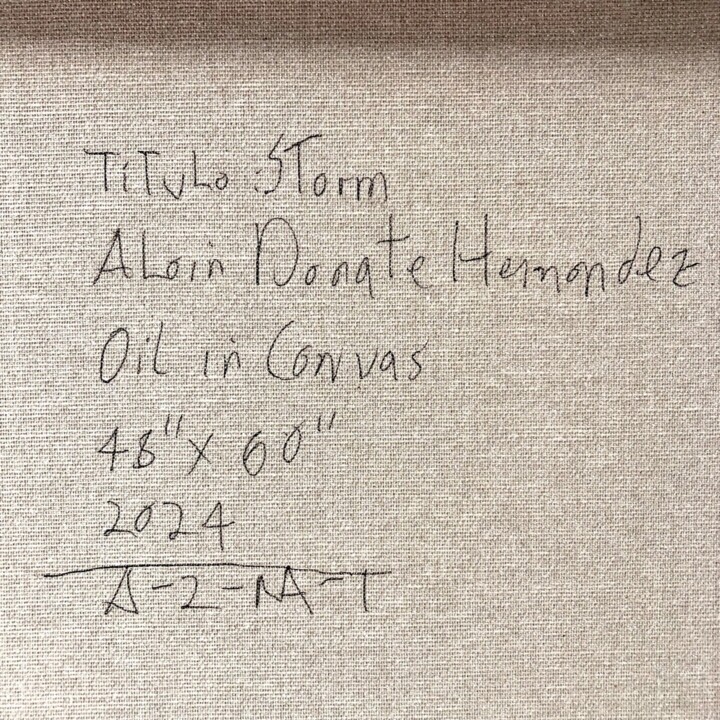 Título: Storm
Aloin Donate Hernandez
Oil in Canvas
48" X 60"
2024
A-2-NA-T